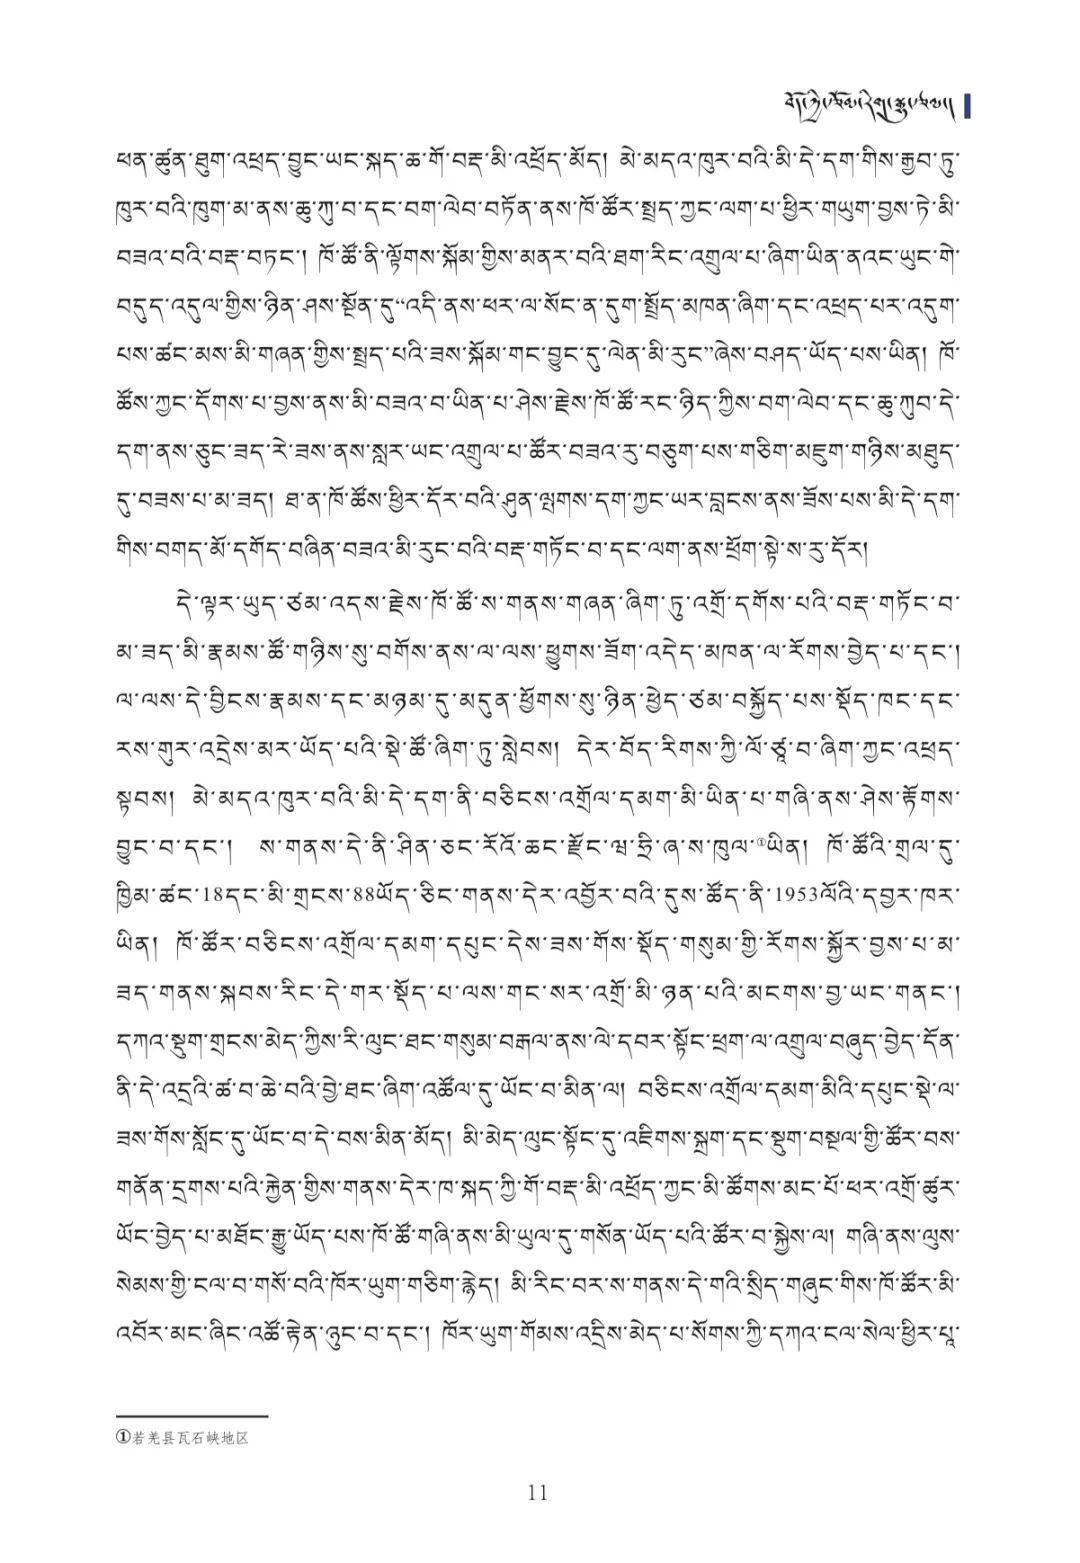 ཕན་ཚུན་ཐུག་འཕྲད་བྱུང་ཡང་སྐད་ཆ་གོ་བརྡ་མི་འཕྲོད་མོད། མེ་མདའ་ཁུར་བའི་མི་དེ་དག་གིས་རྒྱབ་ཏུ་
ཁུར་བའི་ཁུག་མ་ནས་ཆུ་ཀུ་བ་དང་བག་ལེབ་བཏོན་ནས་ཁོ་ཚོར་སྤྲད་ཀྱང་ལག་པ་ཕྱིར་གཡུག་བྱས་ཏེ་མི་
བཟའ་བའི་བརྡ་བཏང་། ཁོ་ཚོ་ནི་ལྟོགས་སྐོམ་གྱིས་མནར་བའི་ཐག་རིང་འགྲུལ་པ་ཞིག་ཡིན་ནའང་ཡུང་གེ་
བདུད་འདུལ་གྱིས་ཉིན་ཤས་སྔོན་དུ“འདི་ནས་ཕར་ལ་སོང་ན་དུག་སྤྲོད་མཁན་ཞིག་དང་འཕྲད་པར་འདུག་
པས་ཚང་མས་མི་གཞན་གྱིས་སྤྲད་པའི་ཟས་སྐོམ་གང་བྱུང་དུ་ལེན་མི་རུང”ཞེས་བཤད་ཡོད་པས་ཡིན། ཁོ་
ཚོས་ཀྱང་དོགས་པ་བྱས་ནས་མི་བཟའ་བ་ཡིན་པ་ཤེས་རྗེས་ཁོ་ཚོ་རང་ཉིད་ཀྱིས་བག་ལེབ་དང་ཆུ་ཀུབ་དེ་
དག་ནས་ཅུང་ཟད་རེ་ཟས་ནས་སླར་ཡང་འགྲུལ་པ་ཚོར་བཟའ་རུ་བཅུག་པས་གཅིག་མཇུག་གཉིས་མཐུད་
དུ་བཟས་པ་མ་ཟད། ཐ་ན་ཁོ་ཚོས་ཕྱིར་དོར་བའི་ཤུན་ལྤགས་དག་ཀྱང་ཡར་བླངས་ནས་ཟོས་པས་མི་དེ་དག་
གིས་བགད་མོ་དགོད་བཞིན་བཟའ་མི་རུང་བའི་བརྡ་གཏོང་བ་དང་ལག་ནས་ཕྲོག་སྟེ་ས་རུ་དོར།
དེ་ལྟར་ཡུད་ཙམ་འདས་རྗེས་ཁོ་ཚོ་ས་གནས་གཞན་ཞིག་ཏུ་འགྲོ་དགོས་པའི་བརྡ་གཏོང་བ་
མ་ཟད་མི་རྣམས་ཚོ་གཉིས་སུ་བགོས་ནས་ལ་ལས་ཕྱུགས་ཟོག་འདེད་མཁན་ལ་རོགས་བྱེད་པ་དང་།
ལ་ལས་དེ་བྱིངས་རྣམས་དང་མཉམ་དུ་མདུན་ཕྱོགས་སུ་ཉིན་ཕྱེད་ཙམ་བསྐྱོད་པས་སྡོད་ཁང་དང་
རས་གུར་འདྲེས་མར་ཡོད་པའི་སྡེ་ཚོ་ཞིག་ཏུ་སླེབས། དེར་བོད་རིགས་ཀྱི་ལོ་ཙཱ་བ་ཞིག་ཀྱང་འཕྲད་
སྟབས། མེ་མདའ་ཁུར་བའི་མི་དེ་དག་ནི་བཅིངས་འགྲོལ་དམག་མི་ཡིན་པ་གཞི་ནས་ཤེས་རྟོགས་
བྱུང་བ་དང་། ས་གནས་དེ་ནི་ཤིན་ཅང་རོའོ་ཆང་རྫོང་ཝ་ཧྲི་ཞ་ས་ཁུལ་①ཡིན། ཁོ་ཚོའི་གྲལ་དུ་
ཁྱིམ་ཚང་18དང་མི་གྲངས་88ཡོད་ཅིང་གནས་དེར་འབྱོར་བའི་དུས་ཚོད་ནི་1953ལོའི་དབྱར་ཁར་
ཡིན། ཁོ་ཚོར་བཅིངས་འགྲོལ་དམག་དཔུང་དེས་ཟས་གོས་སྡོད་གསུམ་གྱི་རོགས་སྐྱོར་བྱས་པ་མ་
ཟད་གནས་སྐབས་རིང་དེ་གར་སྡོད་པ་ལས་གང་སར་འགྲོ་མི་ཉན་པའི་མངགས་བྱ་ཡང་གནང་།
དཀའ་སྡུག་གྲངས་མེད་ཀྱིས་རི་ལུང་ཐང་གསུམ་བརྒལ་ནས་ལེ་དབར་སྟོང་ཕྲག་ལ་འགྲུལ་བཞུད་བྱེད་དོན་
ནི་དེ་འདྲའི་ཚ་བ་ཆེ་བའི་བྱེ་ཐང་ཞིག་འཚོལ་དུ་ཡོང་བ་མིན་ལ། བཅིངས་འགྲོལ་དམག་མིའི་དཔུང་སྡེ་ལ་
ཟས་གོས་སློང་དུ་ཡོང་བ་དེ་བས་མིན་མོད། མི་མེད་ལུང་སྟོང་དུ་འཇིགས་སྐྲག་དང་སྡུག་བསྔལ་གྱི་ཚོར་བས་
གནོན་དྲགས་པའི་རྐྱེན་གྱིས་གནས་དེར་ཁ་སྐད་ཀྱི་གོ་བརྡ་མི་འཕྲོད་ཀྱང་མི་ཚོགས་མང་པོ་ཕར་འགྲོ་ཚུར་
ཡོང་བྱེད་པ་མཐོང་རྒྱུ་ཡོད་པས་ཁོ་ཚོ་གཞི་ནས་མི་ཡུལ་དུ་གསོན་ཡོད་པའི་ཚོར་བ་སྐྱེས་ལ། གཞི་ནས་ལུས་
སེམས་ཀྱི་ངལ་བ་གསོ་བའི་ཁོར་ཡུག་གཅིག་རྙེད། མི་རིང་བར་ས་གནས་དེ་གའི་སྲིད་གཞུང་གིས་ཁོ་ཚོར་མི་
འབོར་མང་ཞིང་འཚོ་རྟེན་ཉུང་བ་དང་། ཁོར་ཡུག་གོམས་འདྲིས་མེད་པ་སོགས་ཀྱི་དཀའ་ངལ་སེལ་ཕྱིར་པཱ་
①若羌县瓦石峡地区
11